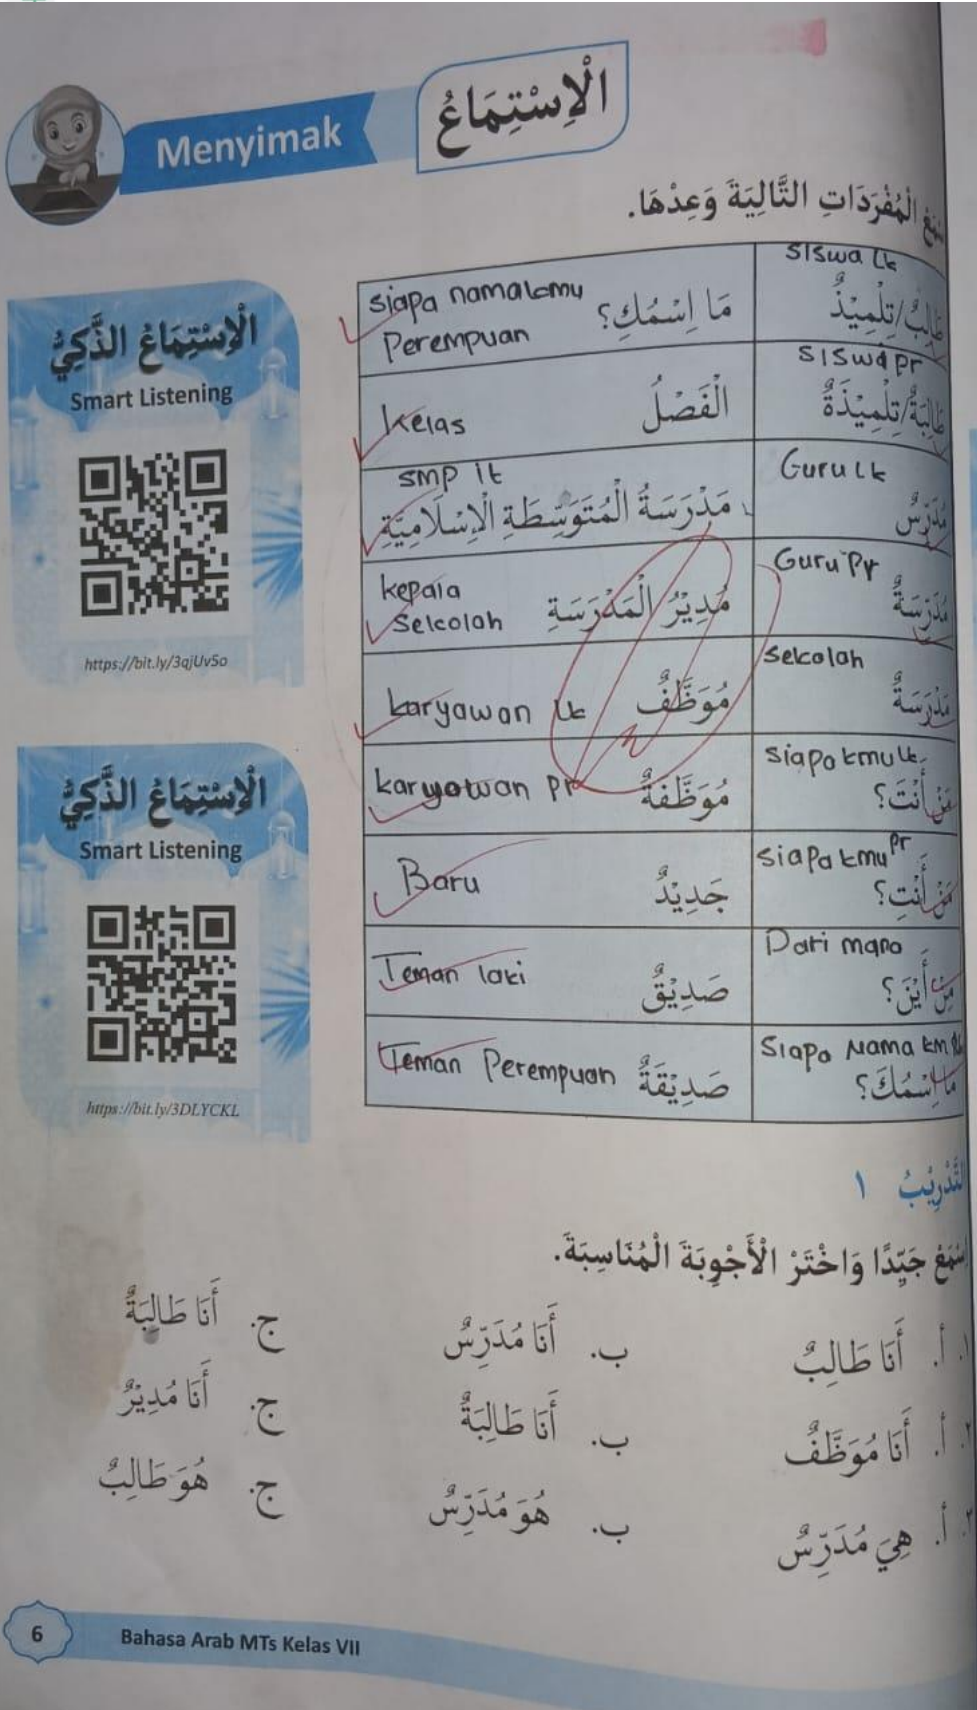 الْاِسْتِمَاعُ
Menyimak
الْمُفْرَدَاتِ التَّالِيَةَ وَعِدْهَا.
الْاِسْتِمَاعُ الذَّكِيُّ
Smart Listening
https://bit.ly/3qjUv5o
الْاِسْتِمَاعُ الذَّكِيُّ
Smart Listening
https://bit.ly/3DLYCKL
siswa Lk
طَالِبٌ/تِلْمِيْذٌ
siapa namakmu
Perempuan
مَا اِسْمُكِ؟
siswa pr
طَالِبَةٌ/تِلْمِيْذَةٌ
kelas
الْفَصْلُ
Guru Lk
مُدَرِّسٌ
smp it
مَدْرَسَةُ الْمُتَوَسِّطَةِ الْاِسْلَامِيَّةِ
Guru Pr
مُدَرِّسَةٌ
kepala
sekolah
مُدِيْرُ الْمَدْرَسَةِ
sekolah
مَدْرَسَةٌ
karyawan lk
مُوَظَّفٌ
siapa kmu Lk
مَنْ أَنْتَ؟
karyawan pr
مُوَظَّفَةٌ
siapa kmu pr
مَنْ أَنْتِ؟
Baru
جَدِيْدٌ
Dari mana
مِنْ أَيْنَ؟
Teman laki
صَدِيْقٌ
Siapa Nama km
مَا اِسْمُكَ؟
Teman Perempuan
صَدِيْقَةٌ
التَّدْرِيْبُ ١
اِسْمَعْ جَيِّدًا وَاخْتَرْ الْأَجْوِبَةَ الْمُنَاسِبَةَ.
١. أ. أَنَا طَالِبٌ ب. أَنَا مُدَرِّسٌ ج. أَنَا طَالِبَةٌ
٢. أ. أَنَا مُوَظَّفٌ ب. أَنَا طَالِبَةٌ ج. أَنَا مُدِيْرٌ
٣. أ. هِيَ مُدَرِّسٌ ب. هُوَ مُدَرِّسٌ ج. هُوَ طَالِبٌ
6
Bahasa Arab MTs Kelas VII